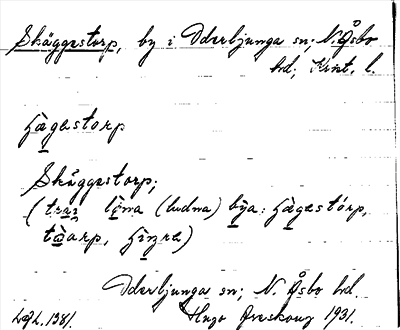 Skäggestorp, by i Oderljunga sn; N. Åsbo
hd; Krist. l.
hägestorp
Skäggestorp;
(traı löna (ludna) býa: hägestórp,
tàarp, hıŋra)
Oderljunga sn; N. Åsbo hd.
Hugo Areskoug 1931.